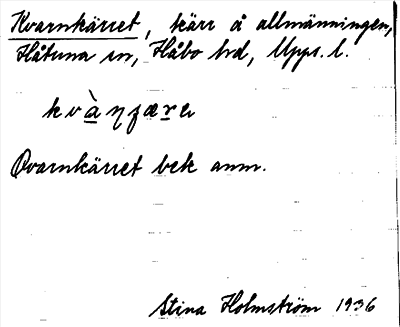 Kvarnkärret, kärr å allmänningen,
Håtuna sn, Håbo hd, Upps. l.
kvàɳʃære
Qvarnkärret bek anm.
Stina Holmström 1936